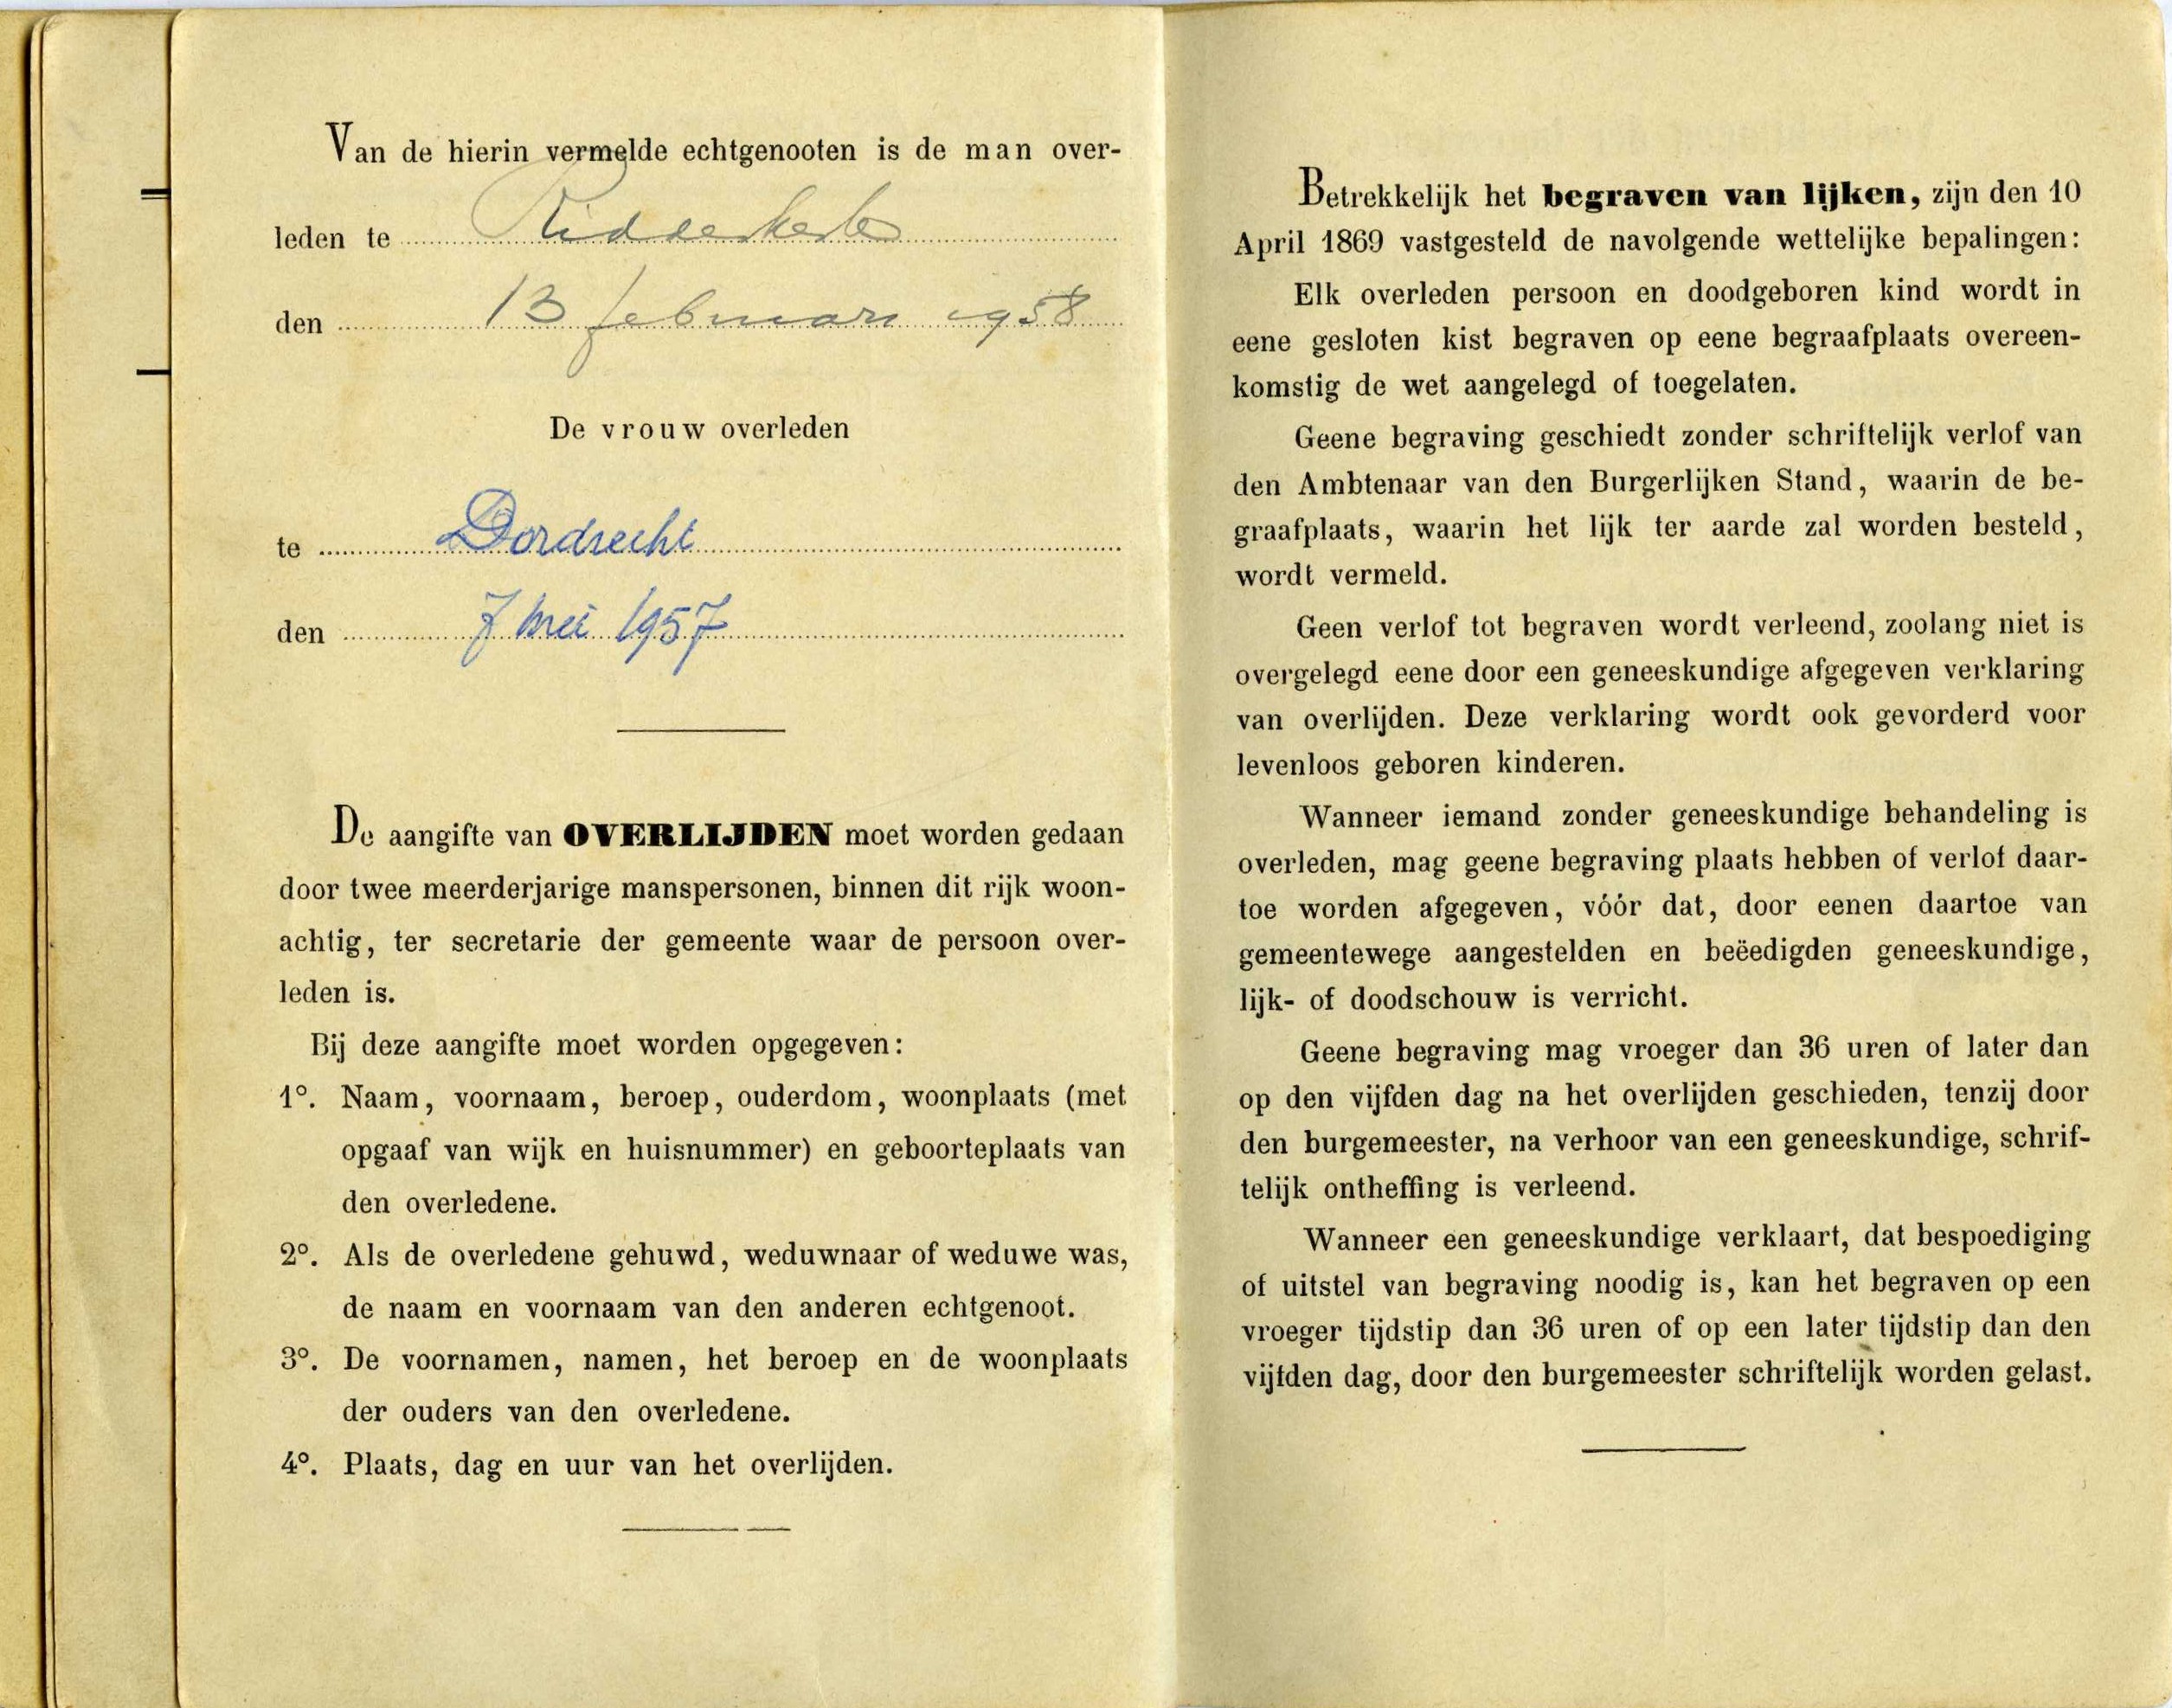 Van de hierin vermelde echtgenooten is de man over-
leden te Ridderkerk
den 13 februari 1958
De vrouw overleden
te Dordrecht
den 7 Mei 1957
De aangifte van OVERLIJDEN moet worden gedaan
door twee meerderjarige manspersonen, binnen dit rijk woon-
achtig, ter secretarie der gemeente waar de persoon over-
leden is.
Bij deze aangifte moet worden opgegeven:
1°. Naam, voornaam, beroep, ouderdom, woonplaats (met
opgaaf van wijk en huisnummer) en geboorteplaats van
den overledene.
2°. Als de overledene gehuwd, weduwnaar of weduwe was,
de naam en voornaam van den anderen echtgenoot.
3°. De voornamen, namen, het beroep en de woonplaats
der ouders van den overledene.
4°. Plaats, dag en uur van het overlijden.
Betrekkelijk het begraven van lijken, zijn den 10
April 1869 vastgesteld de navolgende wettelijke bepalingen:
Elk overleden persoon en doodgeboren kind wordt in
eene gesloten kist begraven op eene begraafplaats overeen-
komstig de wet aangelegd of toegelaten.
Geene begraving geschiedt zonder schriftelijk verlof van
den Ambtenaar van den Burgerlijken Stand, waarin de be-
graafplaats, waarin het lijk ter aarde zal worden besteld,
wordt vermeld.
Geen verlof tot begraven wordt verleend, zoolang niet is
overgelegd eene door een geneeskundige afgegeven verklaring
van overlijden. Deze verklaring wordt ook gevorderd voor
levenloos geboren kinderen.
Wanneer iemand zonder geneeskundige behandeling is
overleden, mag geene begraving plaats hebben of verlof daar-
toe worden afgegeven, vóór dat, door eenen daartoe van
gemeentewege aangestelden en beëedigden geneeskundige,
lijk- of doodschouw is verricht.
Geene begraving mag vroeger dan 36 uren of later dan
op den vijfden dag na het overlijden geschieden, tenzij door
den burgemeester, na verhoor van een geneeskundige, schrif-
telijk ontheffing is verleend.
Wanneer een geneeskundige verklaart, dat bespoediging
of uitstel van begraving noodig is, kan het begraven op een
vroeger tijdstip dan 36 uren of op een later tijdstip dan den
vijfden dag, door den burgemeester schriftelijk worden gelast.